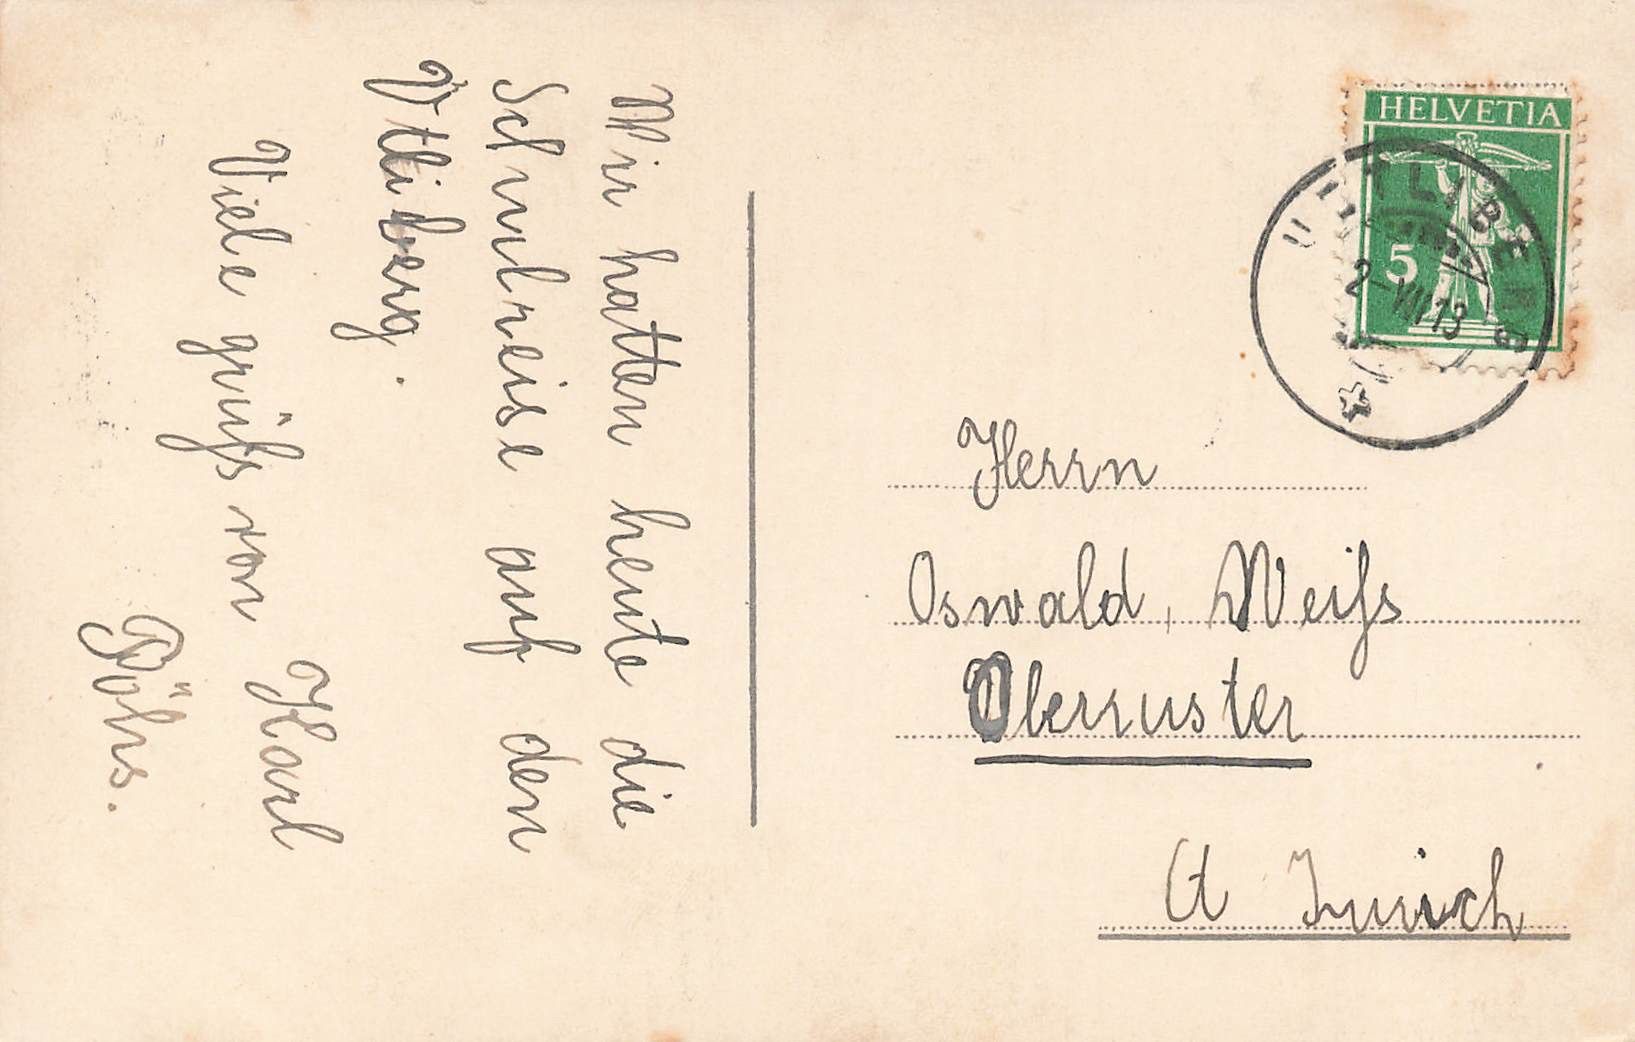 Wir hatten heute die
Schulreise auf den
Utliberg.
Viele grüßs von Karl
HELVETIA
5
UETLIBERG
2-VIII 13
Herrn
Oswald, Weiß
Oberruster
Ct Zürich